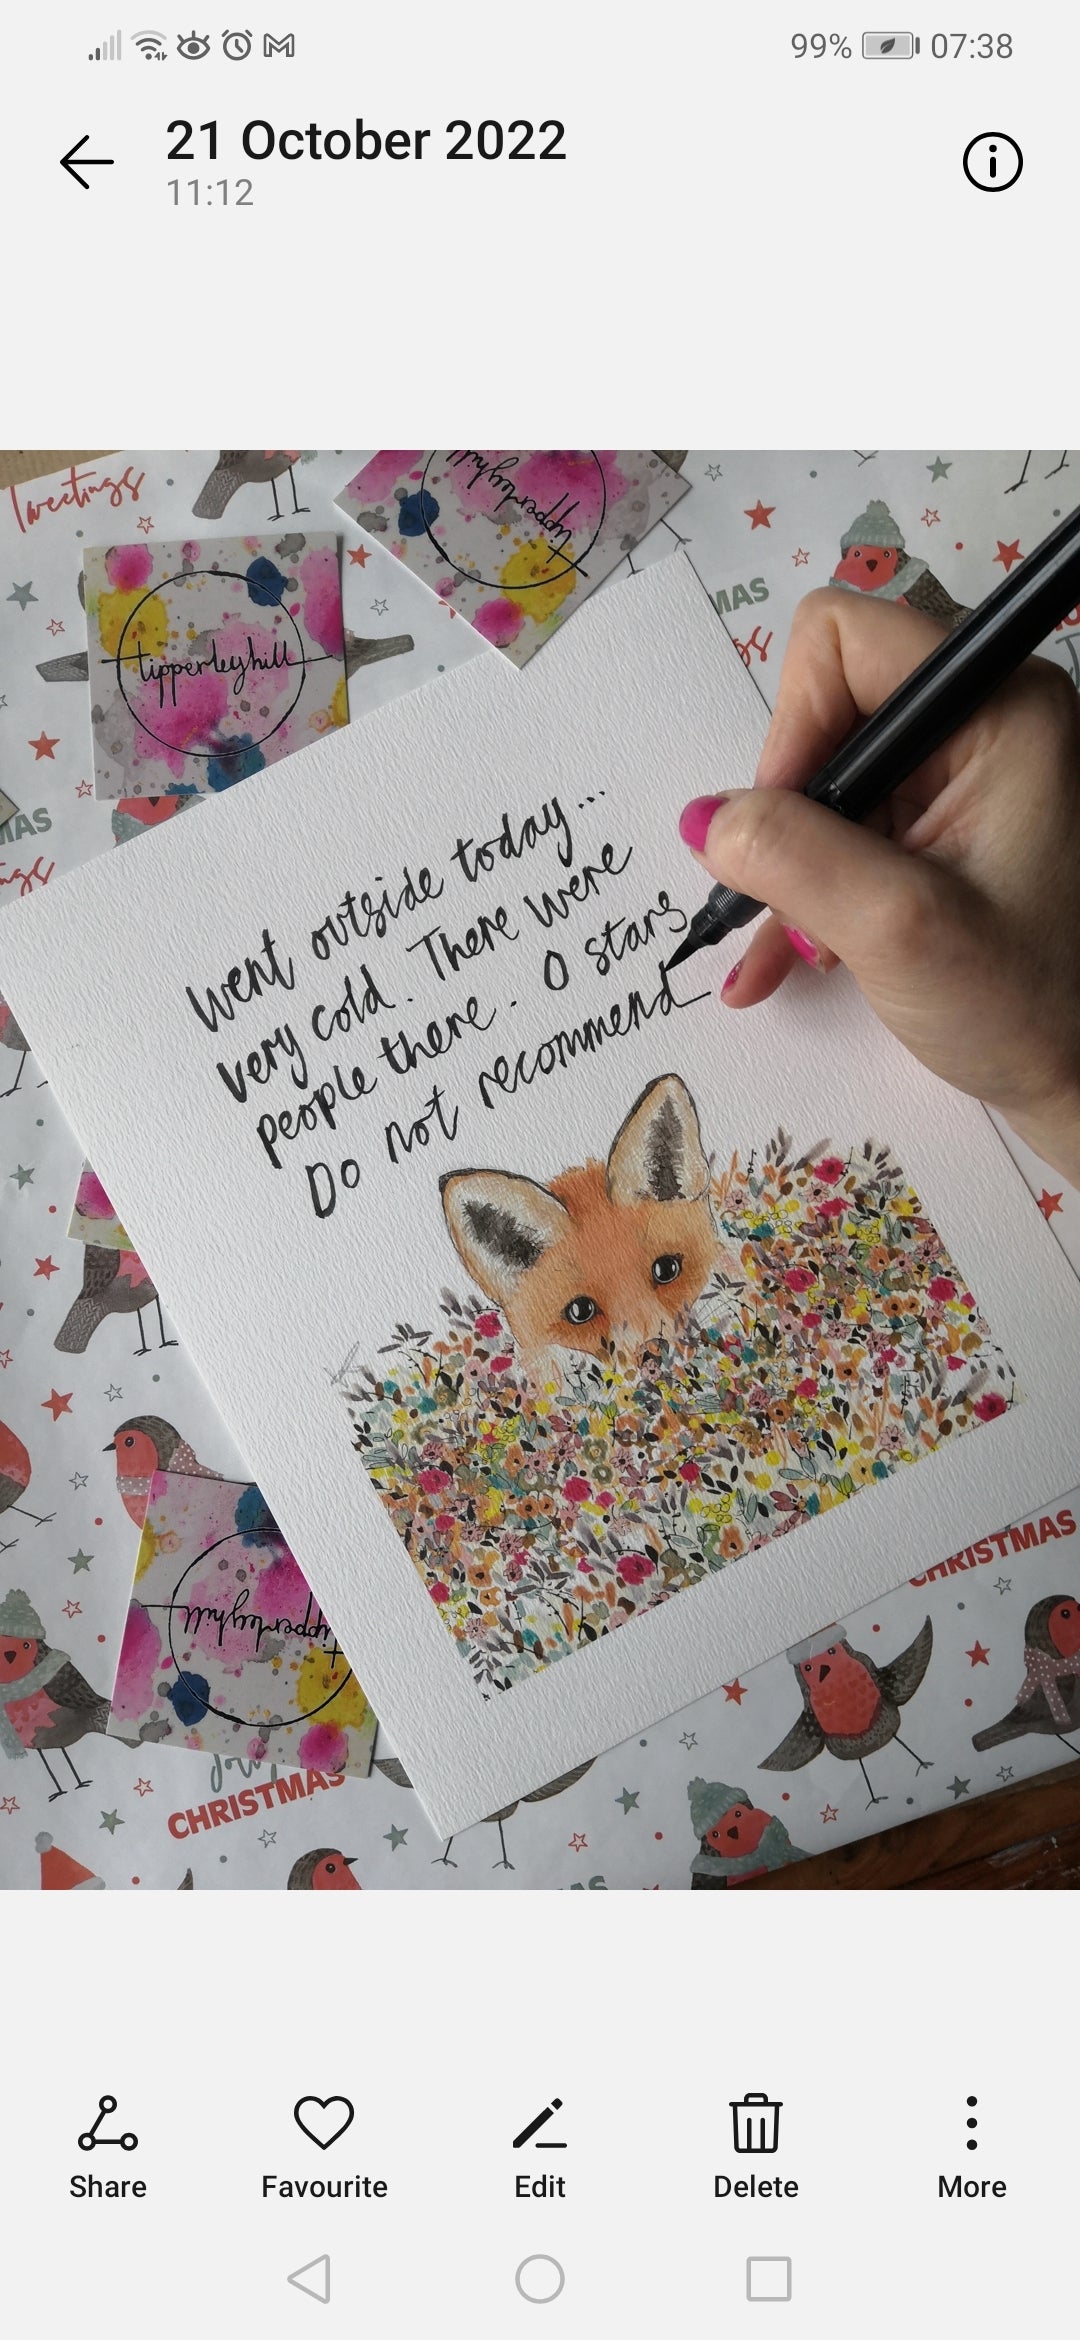 99% 07:38
21 October 2022
11:12
Tweetings
tipperleyhill
tipperleyhill
MAS
MAS
Went outside today...
very cold. There were
people there. 0 stars
Do not recommend
CHRISTMAS
tipperleyhill
Jolly
CHRISTMAS
AS
Share
Favourite
Edit
Delete
More